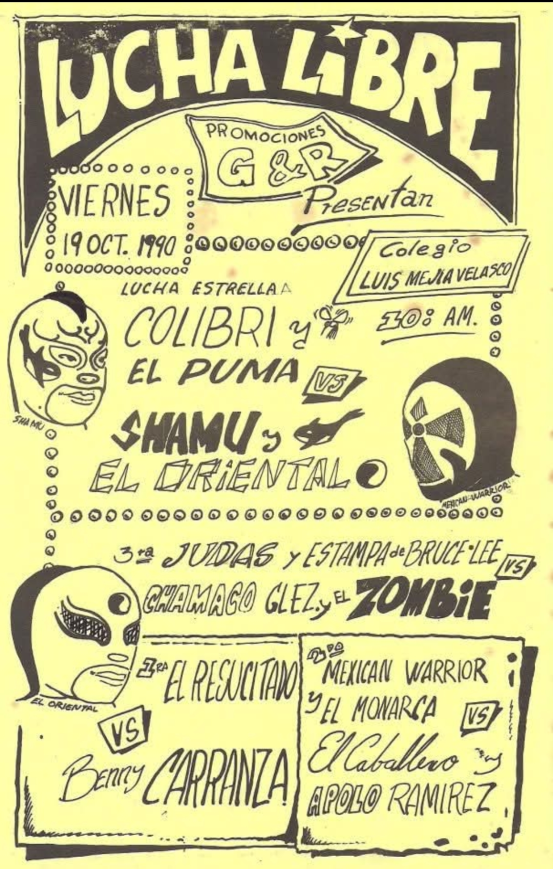 LUCHA LIBRE
PROMOCIONES
G & R
Presentan
VIERNES
19 OCT. 1990
Colegio
LUIS MEJIA VELASCO
10: AM.
LUCHA ESTRELLA
COLIBRI y
EL PUMA VS
SHAMU y
EL ORIENTAL
SHAMU
MEXICAN WARRIOR
3ra JUDAS y ESTAMPA de BRUCE-LEE VS
CHAMACO GLEZ. y EL ZOMBIE
EL ORIENTAL
1RA EL RESUCITADO
VS
Benny CARRANZA
MEXICAN WARRIOR
y EL MONARCA VS
El Caballero y
APOLO RAMIREZ